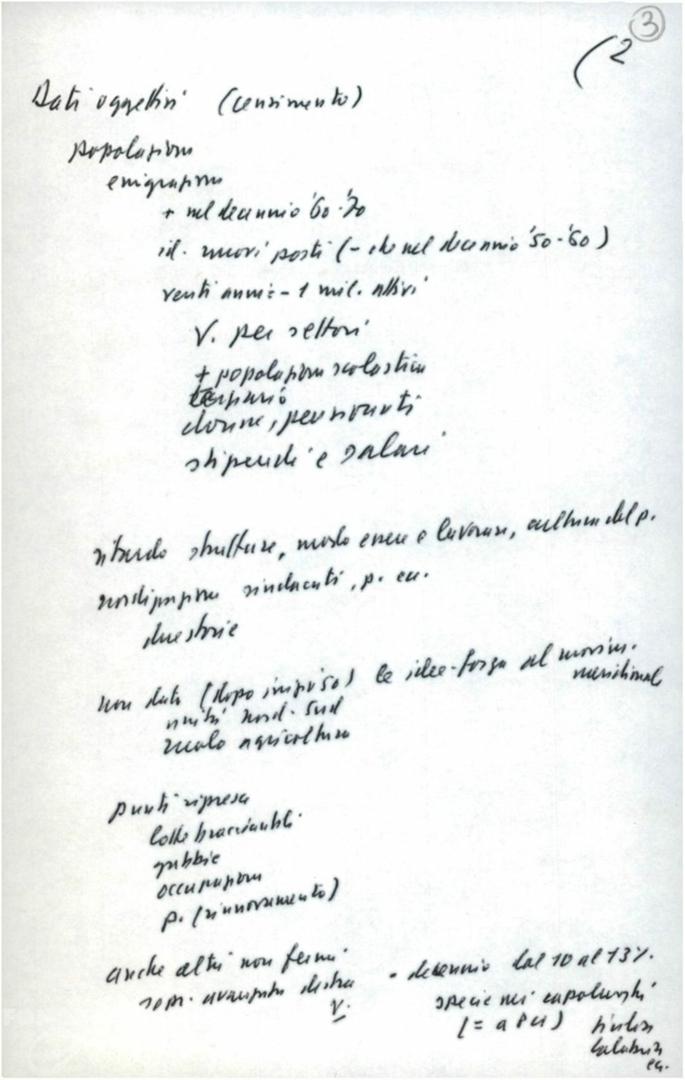 3
(2
Dati oggettivi (censimento)
popolazione
emigrazione
+ nel decennio '60-'70
id. nuovi posti (- che nel decennio '50-'60)
venti anni: - 1 mil. attivi
V. per settori
+ popolazione scolastica
terziario
donne, pensionati
stipendi e salari
ritardo strutture, modo essere e lavorare, cultura del p.
sindacati, p. ecc.
due storie
non dati (dopo inizi '50) le idee-forza al movim.
meridionale
unità nord-sud
ruolo agricoltura
punti ripresa
lotte bracciantili
gabbie
occupazione
p. (rinnovamento)
anche altri non fermi
avanzata destra
V.
- decennio dal 10 al 13%.
specie nei capoluoghi
(= a PCI)
Calabria
ecc.